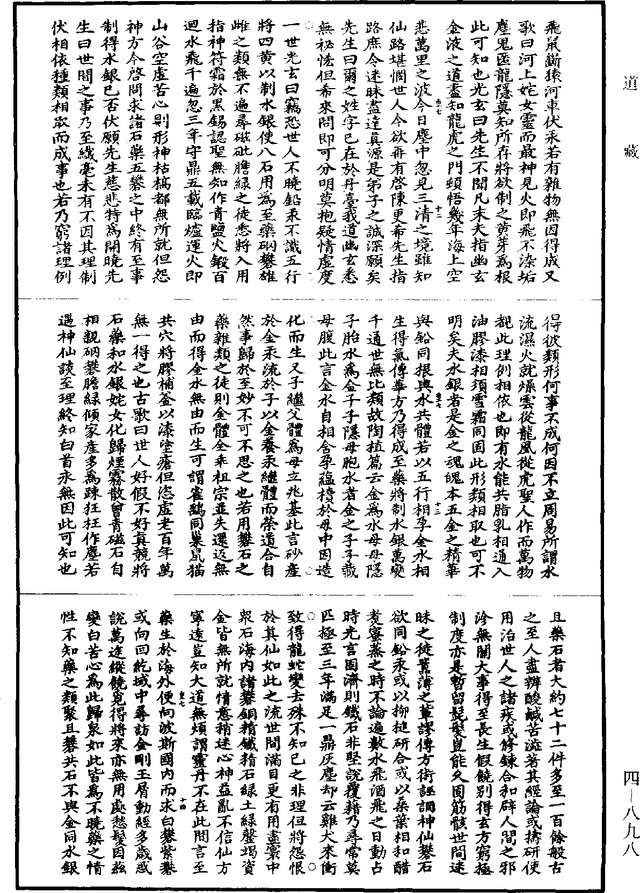 道藏
飛鼠斷猿河車伏汞若有雜物無因得成又
歌曰河上姹女靈而最神見火即飛不染垢
塵鬼匿龍隱莫知所存將欲制之黃芽為根
此可知也光玄曰先生不聞凡末夫指幽玄
金液之道盡知龍虎之門頊悟幾年海上空
悲萬里之波今日塵中忽見三清之境雖知
仙路堪憫世人今欲再有啓陳更希先生指
路庶令迷昧盡達真源是弟子之誠深願矣
先生曰爾之姓字已在於丹臺我道幽玄悉
無祕悋但希來問即可分明莫抱疑情虛度
一世光玄曰竊恐世人不曉鉛汞不識五行
將四黃以制水銀使八石用為至藥硇礬雄
雌之類無不遍尋磁砒膽綠之徒悉將入用
指神符霜於黑錫認聖無知作青鹽火鍛百
迴水飛千遍忽三年守鼎五載臨爐運火即
山谷空虛苦心則形神枯槁都無所就但怨
神方今啓問求諸石藥五礬之中終有至事
制得水銀已否伏願先生慈悲特為開曉先
生曰世間之事乃至纖毫未有不因其理制
伏相依種類相取而成事也若乃窮諸理例
得彼類形何事不成何因不立周易所謂水
流濕火就燥雲從龍風從虎聖人作而萬物
覩此理例相依也即有水能共脂乳相通入
油膠漆相須雪霜同固此形類相取也可不
明矣夫水銀者是金之魂魄本五金之精華
與鉛同根與水共體若以五行相孕金水相
生得氣傳華方乃得成至藥將制水銀萬變
千通世無比類故陶植篇云金為水母母隱
子胎水為金子子隱母胞水者金之子子藏
母腹此言金水自相含孕蘊積於母中因造
化而生又子繼父體為母立兆基此言砂產
於金汞流於子以金養汞繼體而榮造合自
然事歸於至妙不可不思之也若用礬石之
藥雜類之徒則金體全乖祖宗並失還返無
由而得金水無由而生可謂雀鷂同巢鼠猫
共穴將膠補釜以漆塗瘡但恣虛老百年萬
無一得之也古歌曰世人好假不好真競將
石藥和水銀姹女化歸煙霧散曾青磁石自
相親硇礬膽綠傾家產多為踈狂枉作塵若
遇神仙談至理終知白首永無因此可知也
且藥石者大約七十二件多至一百餘般古
之至人盡辨酸鹹苦澁著其經論或擣研使
用治世人之諸疾或修鍊合和辟人間之邪
沴無關大事得至長生假饒別得玄方窮極
制度亦是暫留髭髮豈能久固筋骸世間迷
昧之徒囂薄之輩謬傳方術誑調神仙礬石
欲同鉛汞或以柳槌研合或以桑葉相和醋
煑蜜蒸之時不論遍數水飛酒飛之日動占
時光言固濟則鐵石非堅說覆藉乃尋常莫
匹極至三年滿足一鼎灰塵却云雞犬來衝
致得龍蛇變去殊不知己之非理但將怨恨
於其仙如此之流世間滿目更有用盡囊中
衆石海內諸礬銅精鐵精石緑土綠盤竭資
金皆無所就情意稍迷心神益亂不信仙方
寧遠豈知大道無煩謂靈丹不在此間言至
藥生於海外便向波斯國內而求白礬紫礬
或向回紇域中尋訪金剛玉屑動經多歲或
說萬途縱饒覓得將來亦無用處愁髮因茲
變白苦心為此歸泉如此皆為不曉藥之情
性不知藥之類聚且礬共石不與金同水銀
四—八九八